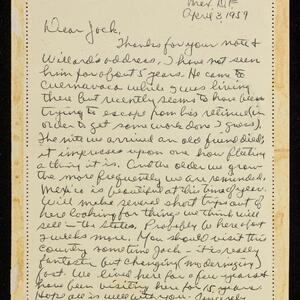 Mex. D.F.
April 3, 1959
Dear Jack.
Thanks for your note &
Willard's address, I have not seen
him for about 5 years. He came to
Cuernavaca while I was living
there but recently seems to have been
trying to escape from his retinue (in
order to get some work done I guess).
The nite we arrived an old friend died,
it impresses upon one how fleeting
a thing it is. And the older we grow
the more frequently we are reminded.
Mexico is beautiful at this time of year.
We'll make several short trips out of
here looking for things we think will
sell in the States. Probably be here for
weeks more. You should visit this
country some time Jack - it is really
fantastic but changing & modernizing
fast. We lived here for a few years &
have been visiting here for 15 years.
Hope all is well with you. Sincerely